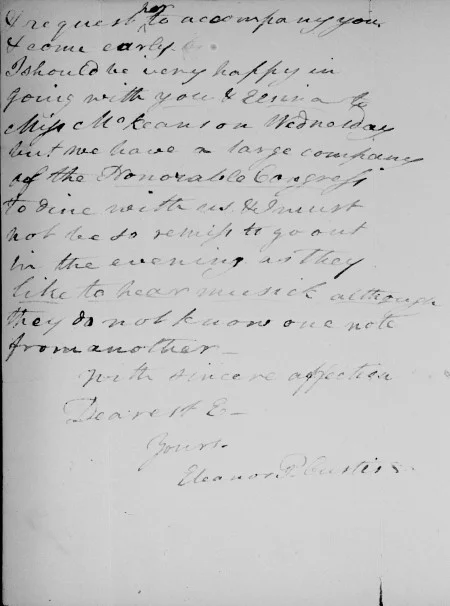 & request her to accompany you
& come early
I should be very happy in
going with you & Zenia to
Miss McKeans on Wednesday
but we have a large company
of the Honorable Congress
to dine with us & I must
not be so remiss to go out
in the evening as they
like to hear musick although
they do not know one note
from another —
With sincere affection
Dearest E—
Yours.
Eleanor P. Custis